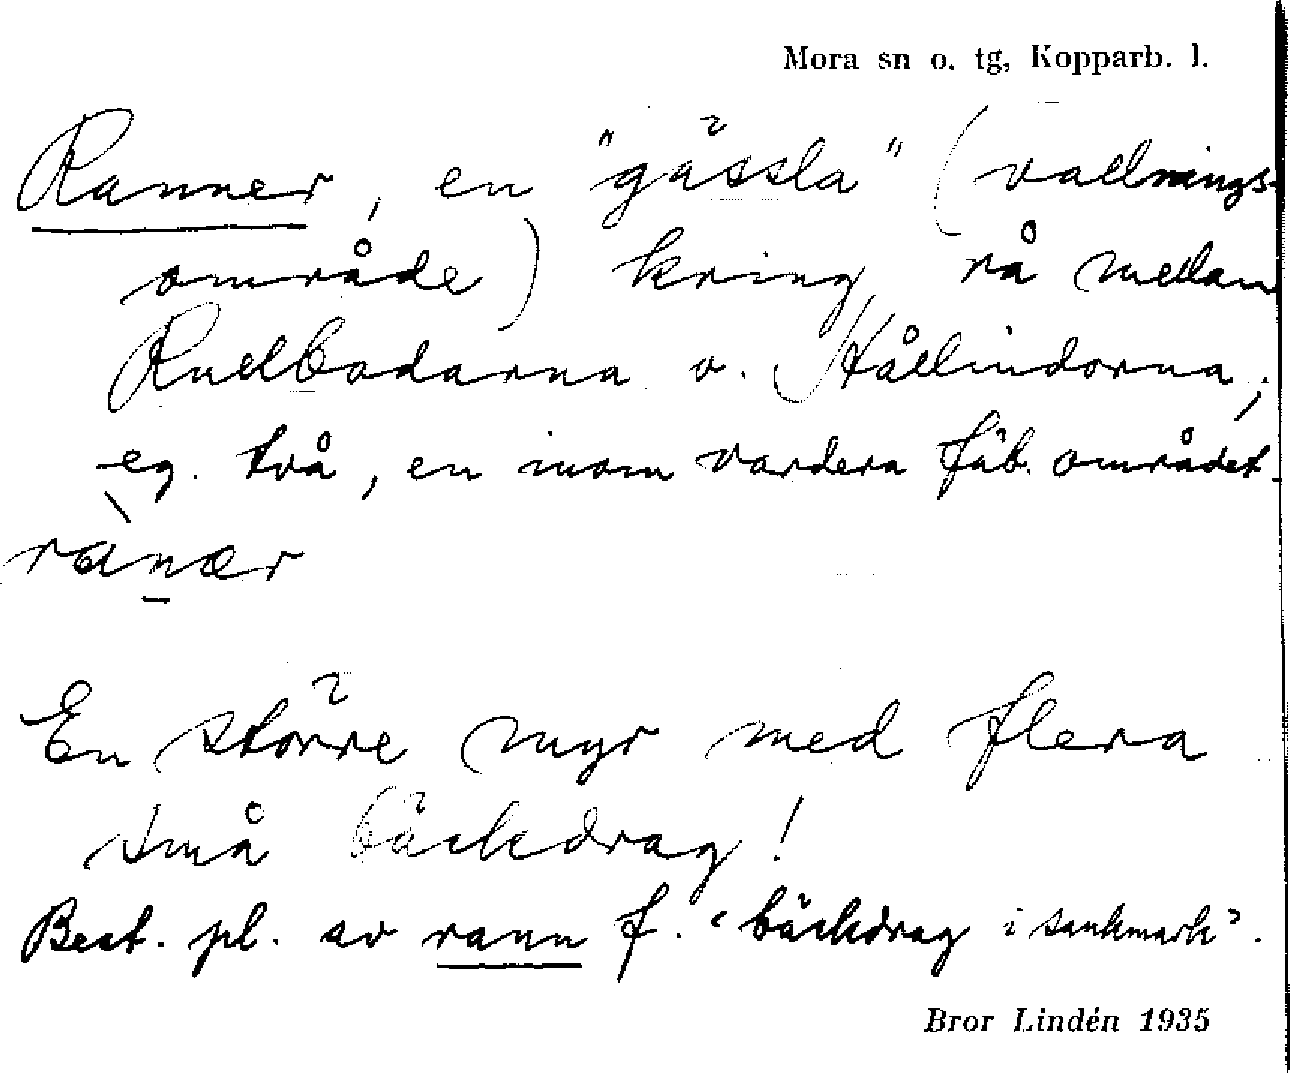 Mora sn o. tg, Kopparb. l.
Ranner, en "gässla" (vallnings-
område) kring rå mellan
Rudbodarna o. Hållindorna,
eg. två, en inom vardera fäb. området.
rànær
En större myr med flera
små bäckdrag!
Best. pl. av rann f. "bäckdrag i sankmark".
Bror Lindén 1935